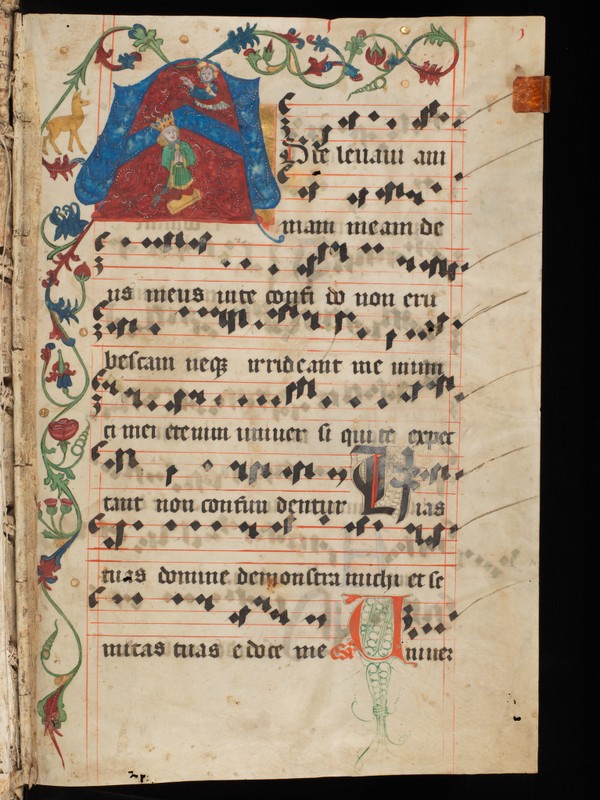 A D te levavi ani
mam meam de
us meus in te confi do non eru
bescam neqꝫ irrideant me inimi
ci mei etenim univer si qui te expec
tant non confun dentur Vias
tuas domine demonstra michi et se
mitas tuas e doce me Univer